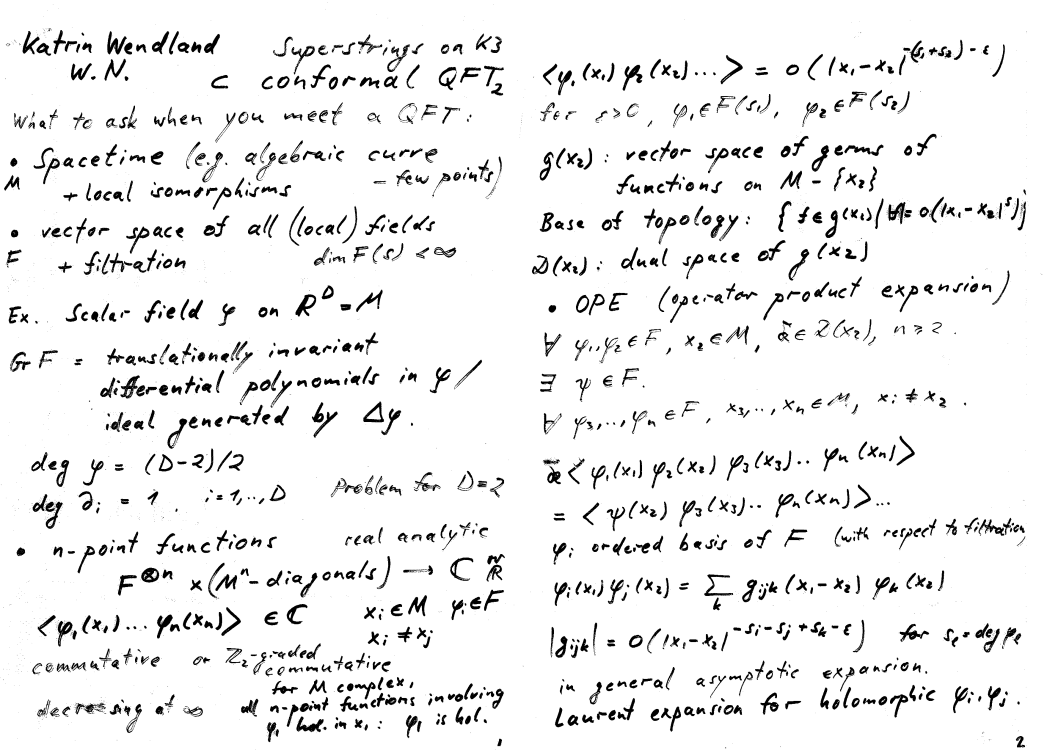 Katrin Wendland Superstrings on K3
W. N. ⊂ conformal QFT₂
What to ask when you meet a QFT:
• Spacetime (e.g. algebraic curve
M + local isomorphisms – few points)
• vector space of all (local) fields
F + filtration dim F(s) < ∞
Ex. Scalar field φ on R^D = M
Gr F = translationally invariant
differential polynomials in φ /
ideal generated by Δφ.
deg φ = (D-2)/2
deg ∂ᵢ = 1 i=1,..,D Problem for D=2
• n-point functions real analytic
F^⊗n × (Mⁿ - diagonals) → C or R
<φ₁(x₁)...φₙ(xₙ)> ∈ C xᵢ ∈ M φᵢ ∈ F
xᵢ ≠ xⱼ
commutative or Z₂-graded
commutative
for M complex,
decreasing at ∞ all n-point functions involving
φ₁ hol. in x₁: φ₁ is hol.
1
<φ₁(x₁) φ₂(x₂)...> = O(|x₁-x₂|^{-(s₁+s₂)-ε})
for ε>0, φ₁∈F(s₁), φ₂∈F(s₂)
g(x₂): vector space of germs of
functions on M - {x₂}
Base of topology: { f ∈ g(x₂) | |f| = O(|x₁-x₂|^s)}
D(x₂): dual space of g(x₂)
• OPE (operator product expansion)
∀ φ₁,φ₂∈F, x₂∈M, ∈ D(x₂), n ≥ 2.
∃ ψ ∈ F.
∀ φ₃,...,φₙ ∈ F, x₃,..,xₙ∈M, xᵢ ≠ x₂.
< φ₁(x₁) φ₂(x₂) φ₃(x₃).. φₙ(xₙ)>
= < ψ(x₂) φ₃(x₃).. φₙ(xₙ)>...
φᵢ ordered basis of F (with respect to filtration)
φᵢ(x₁) φⱼ(x₂) = Σ_k g_ijk (x₁-x₂) φ_k(x₂)
|g_ijk| = O(|x₁-x₂|^{-sᵢ-sⱼ+s_k-ε}) for s_ℓ = deg φ_ℓ
in general asymptotic expansion.
Laurent expansion for holomorphic φᵢ, φⱼ.
2